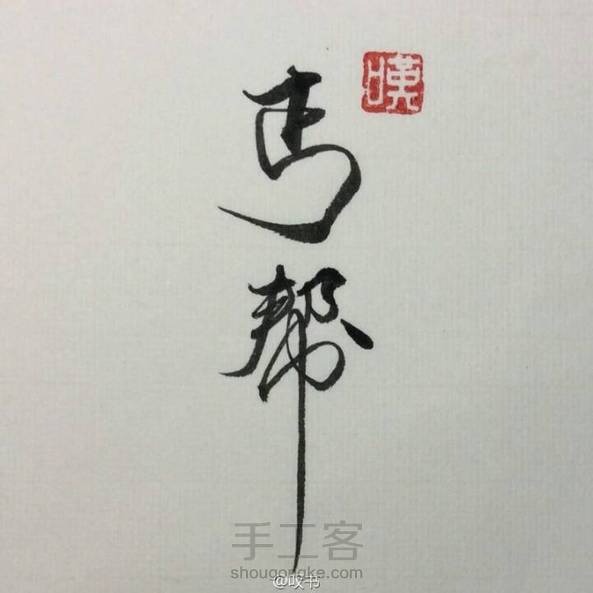 嘆
丐帮
手工客
shougongke.com
@叹书